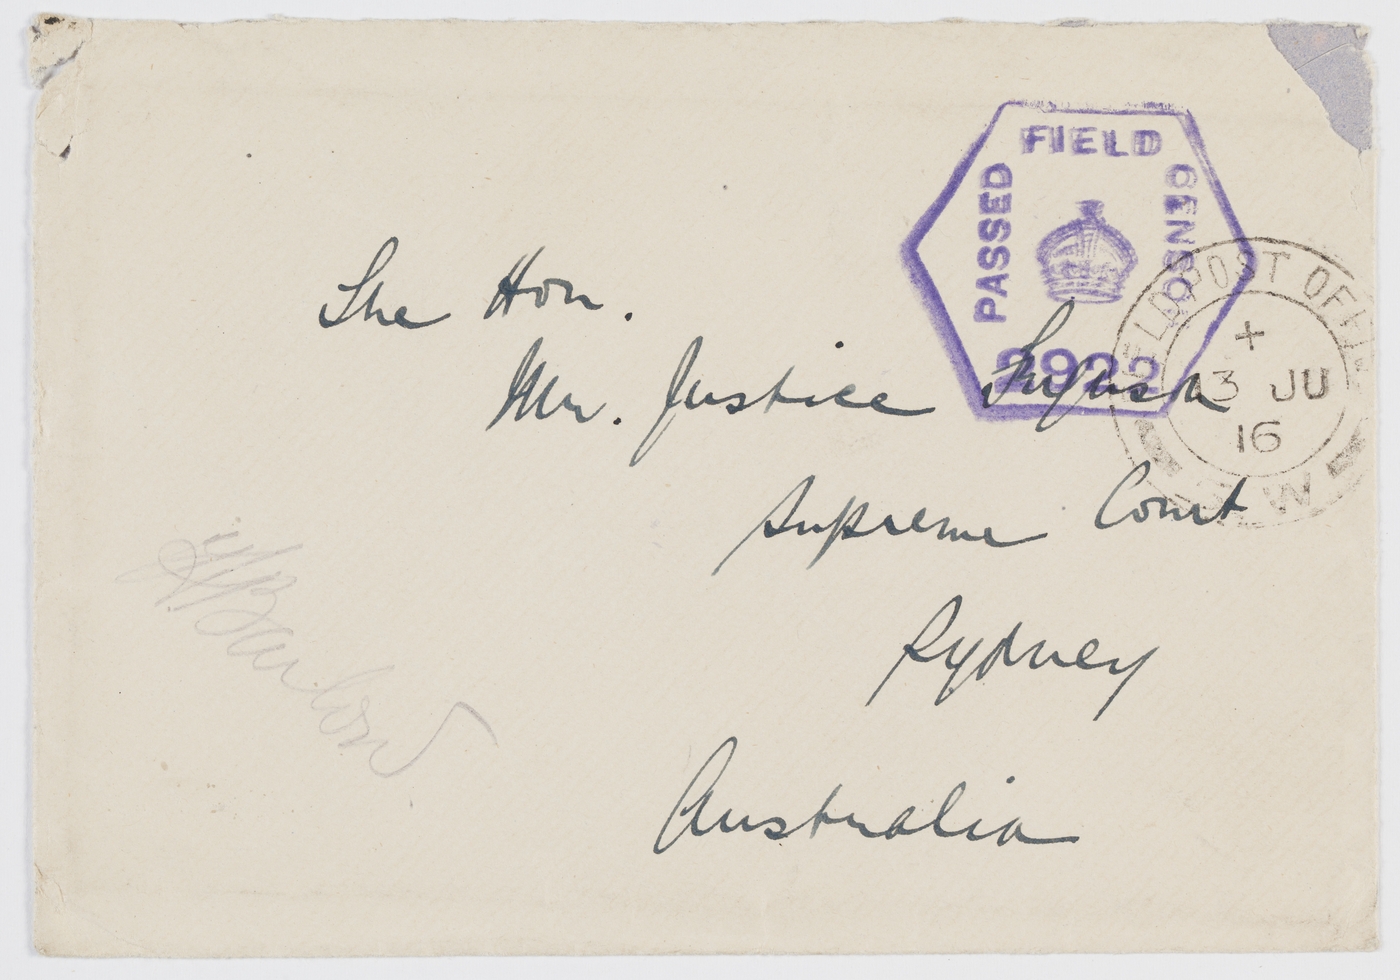 PASSED FIELD CENSOR
2922
FIELD POST OFFI
+
13 JU
16
W
The Hon.
Mr. Justice Ferguson
Supreme Court
Sydney
Australia